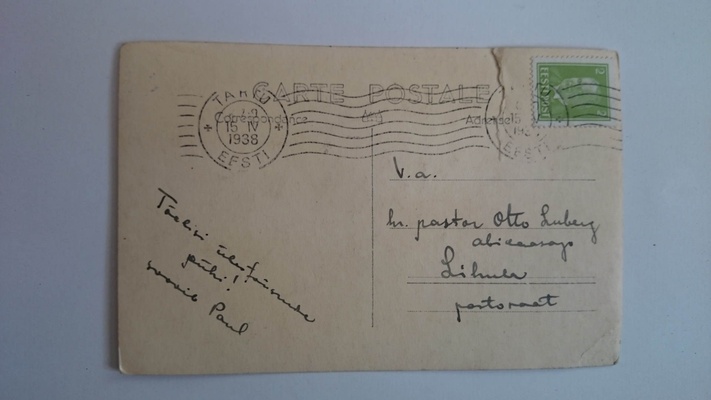 CARTE POSTALE
Correspondance
TARTU
15 IV
1938
EESTI
15
EESTI
EESTI POST
2
V.a.
hr. pastor Otto Luberg
abikaasaga
pastoraat
pühi!
soovib Paul